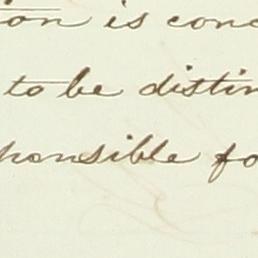 ion is conc
to be distin
ponsible fo